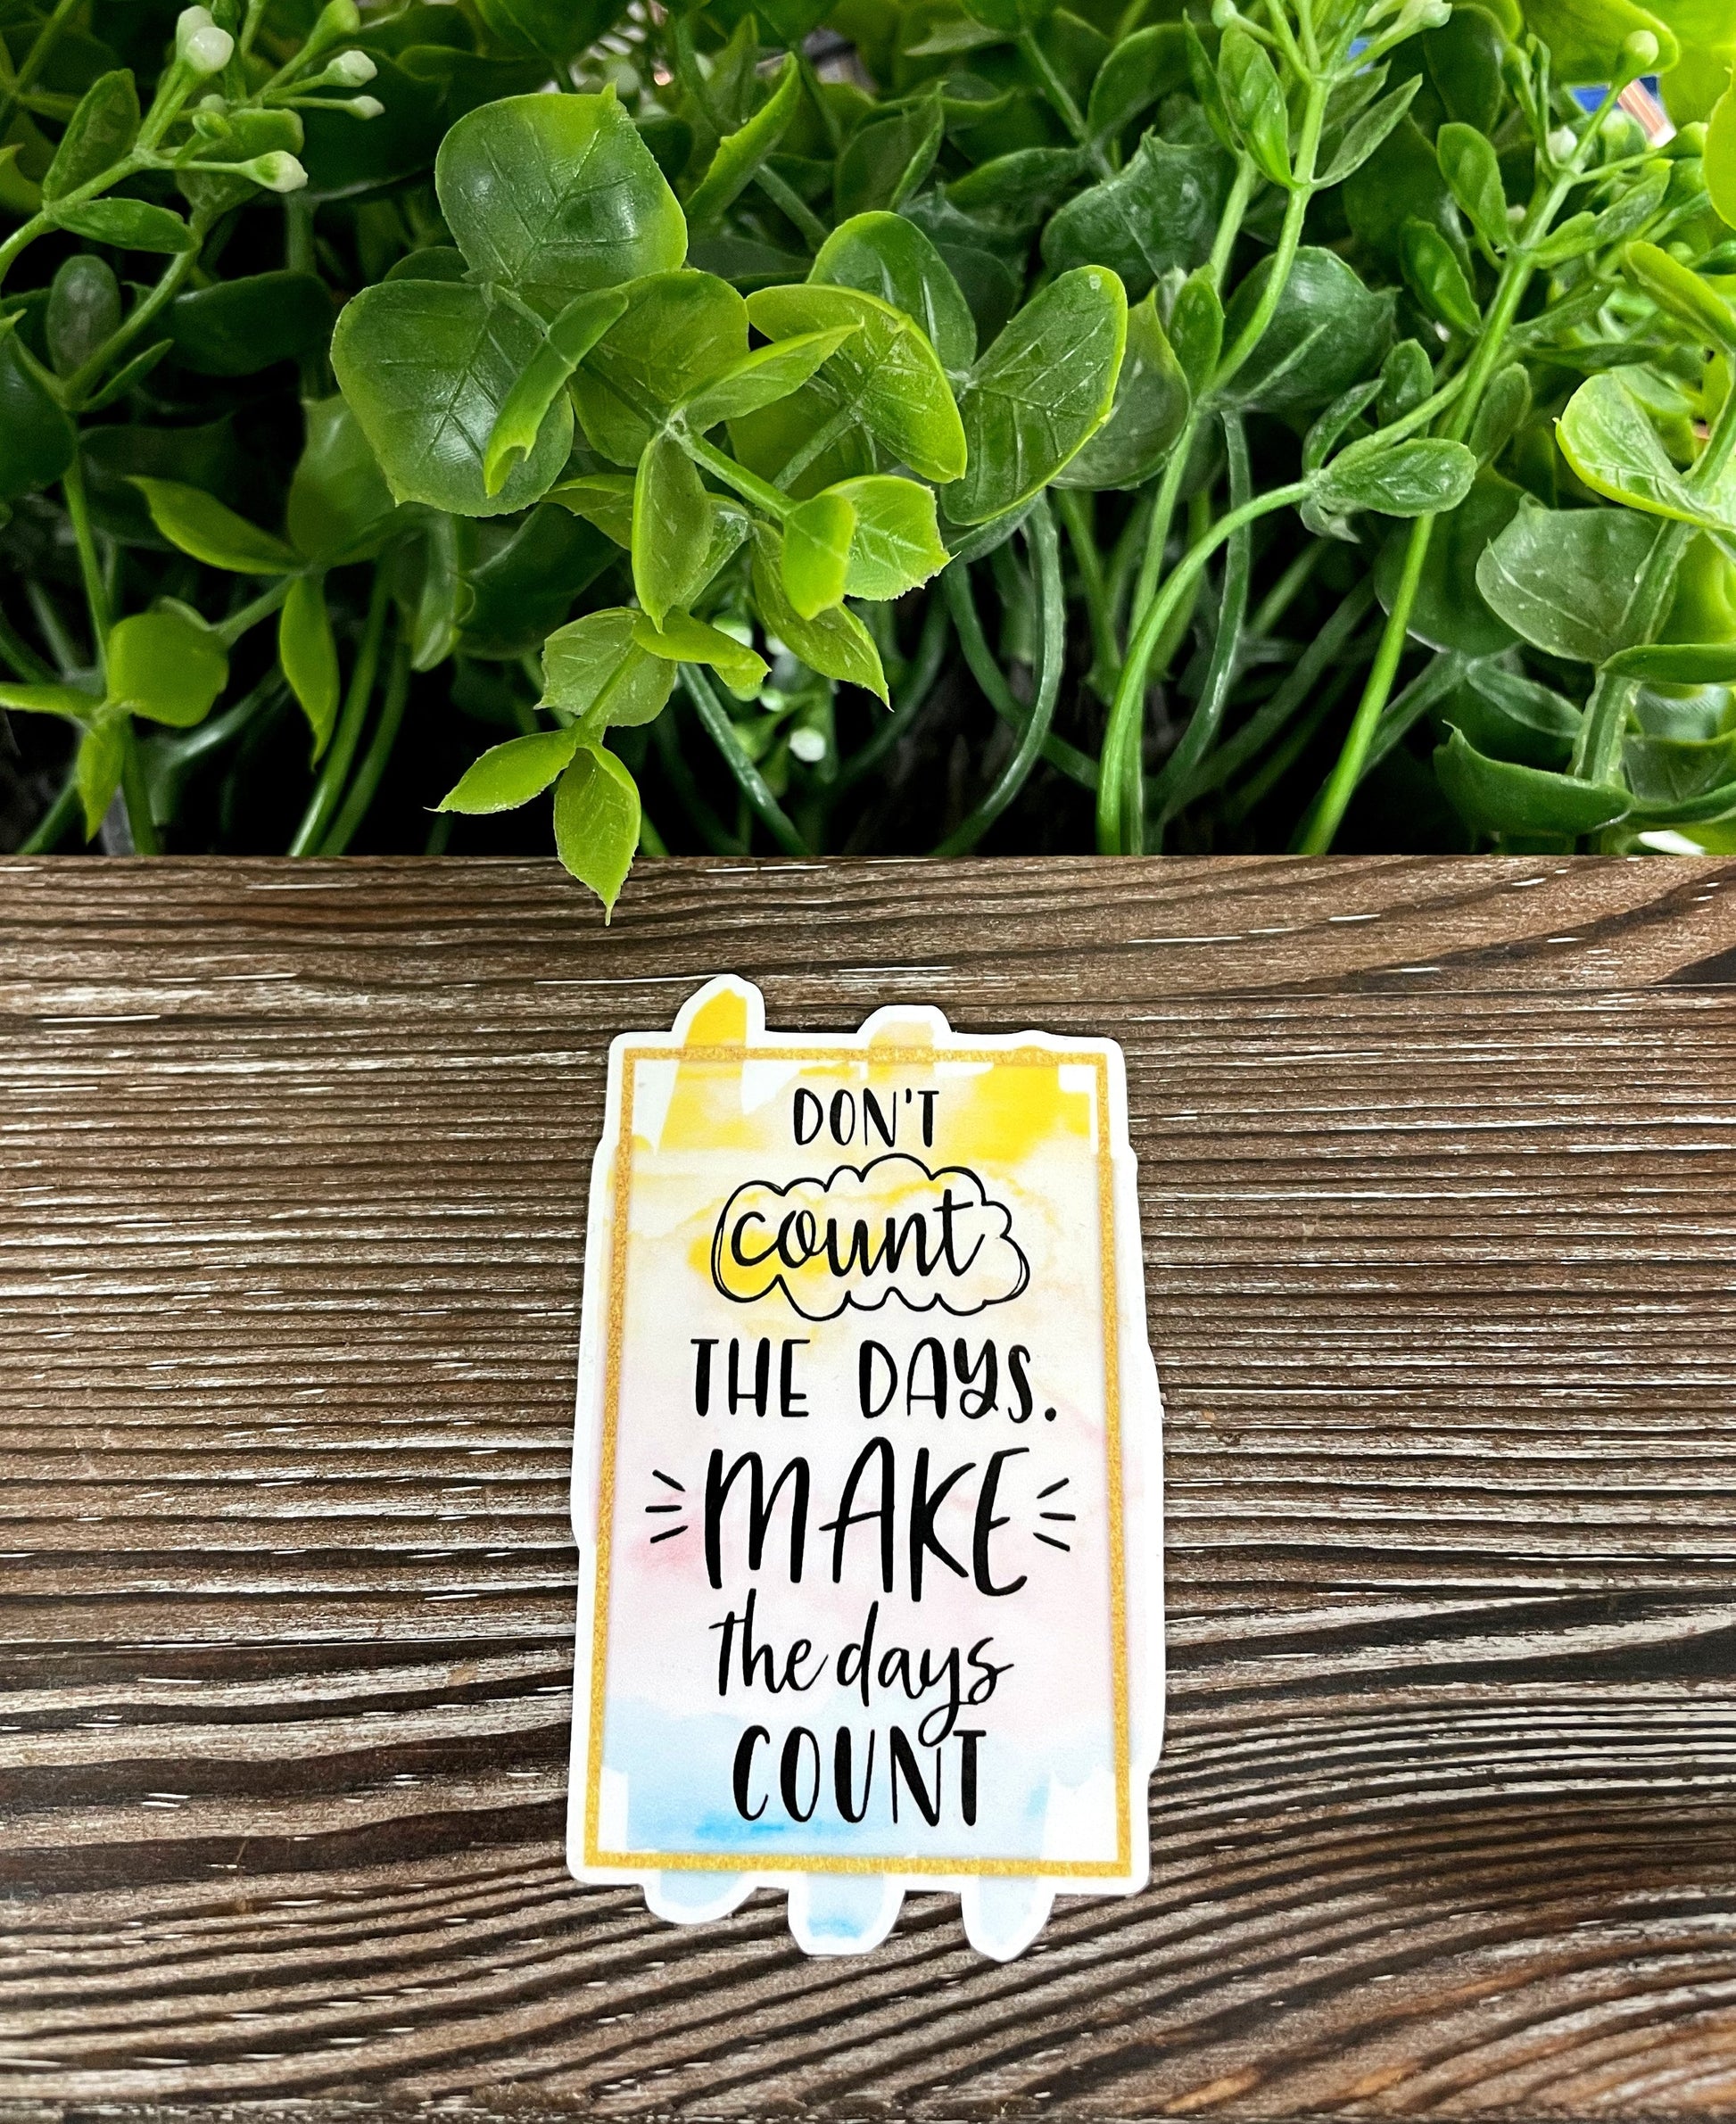 DON'T
count
THE DAYS.
MAKE
the days
COUNT